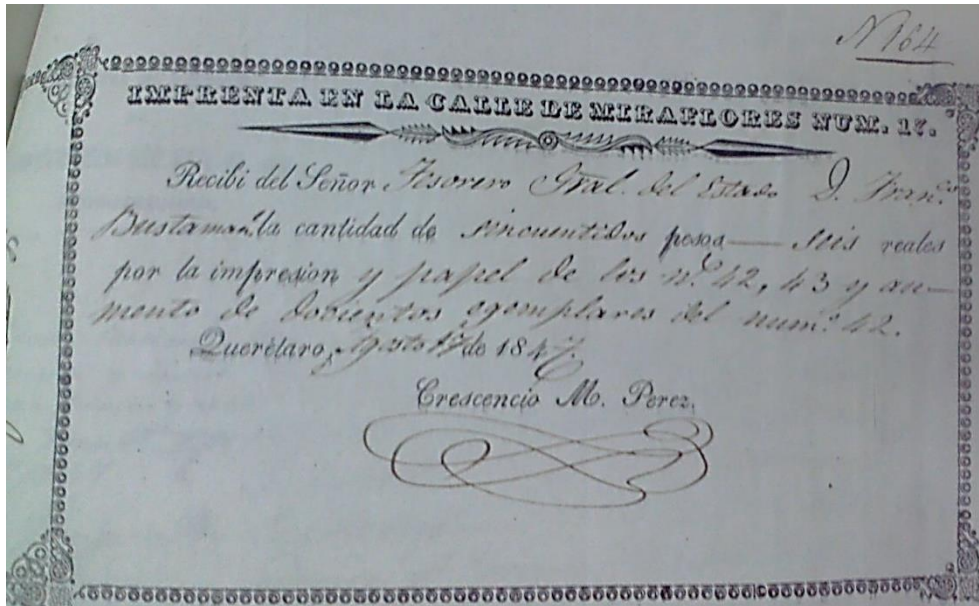 N 164
IMPRENTA EN LA CALLE DE MIRAFLORES NUM. 17.
Recibi del Señor Tesorero Gral. del Estado D. Fran.co
Bustamante la cantidad de sincuentidos pesos — seis reales
por la impresion y papel de los n.os 42, 43 y au-
mento de docientos egemplares del num.o 42.
Querétaro, Agosto 17 de 1847.
Crescencio M. Perez.